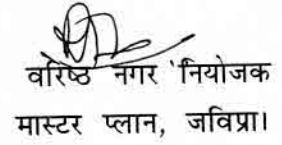 वरिष्ठ नगर नियोजक
मास्टर प्लान, जविप्रा।